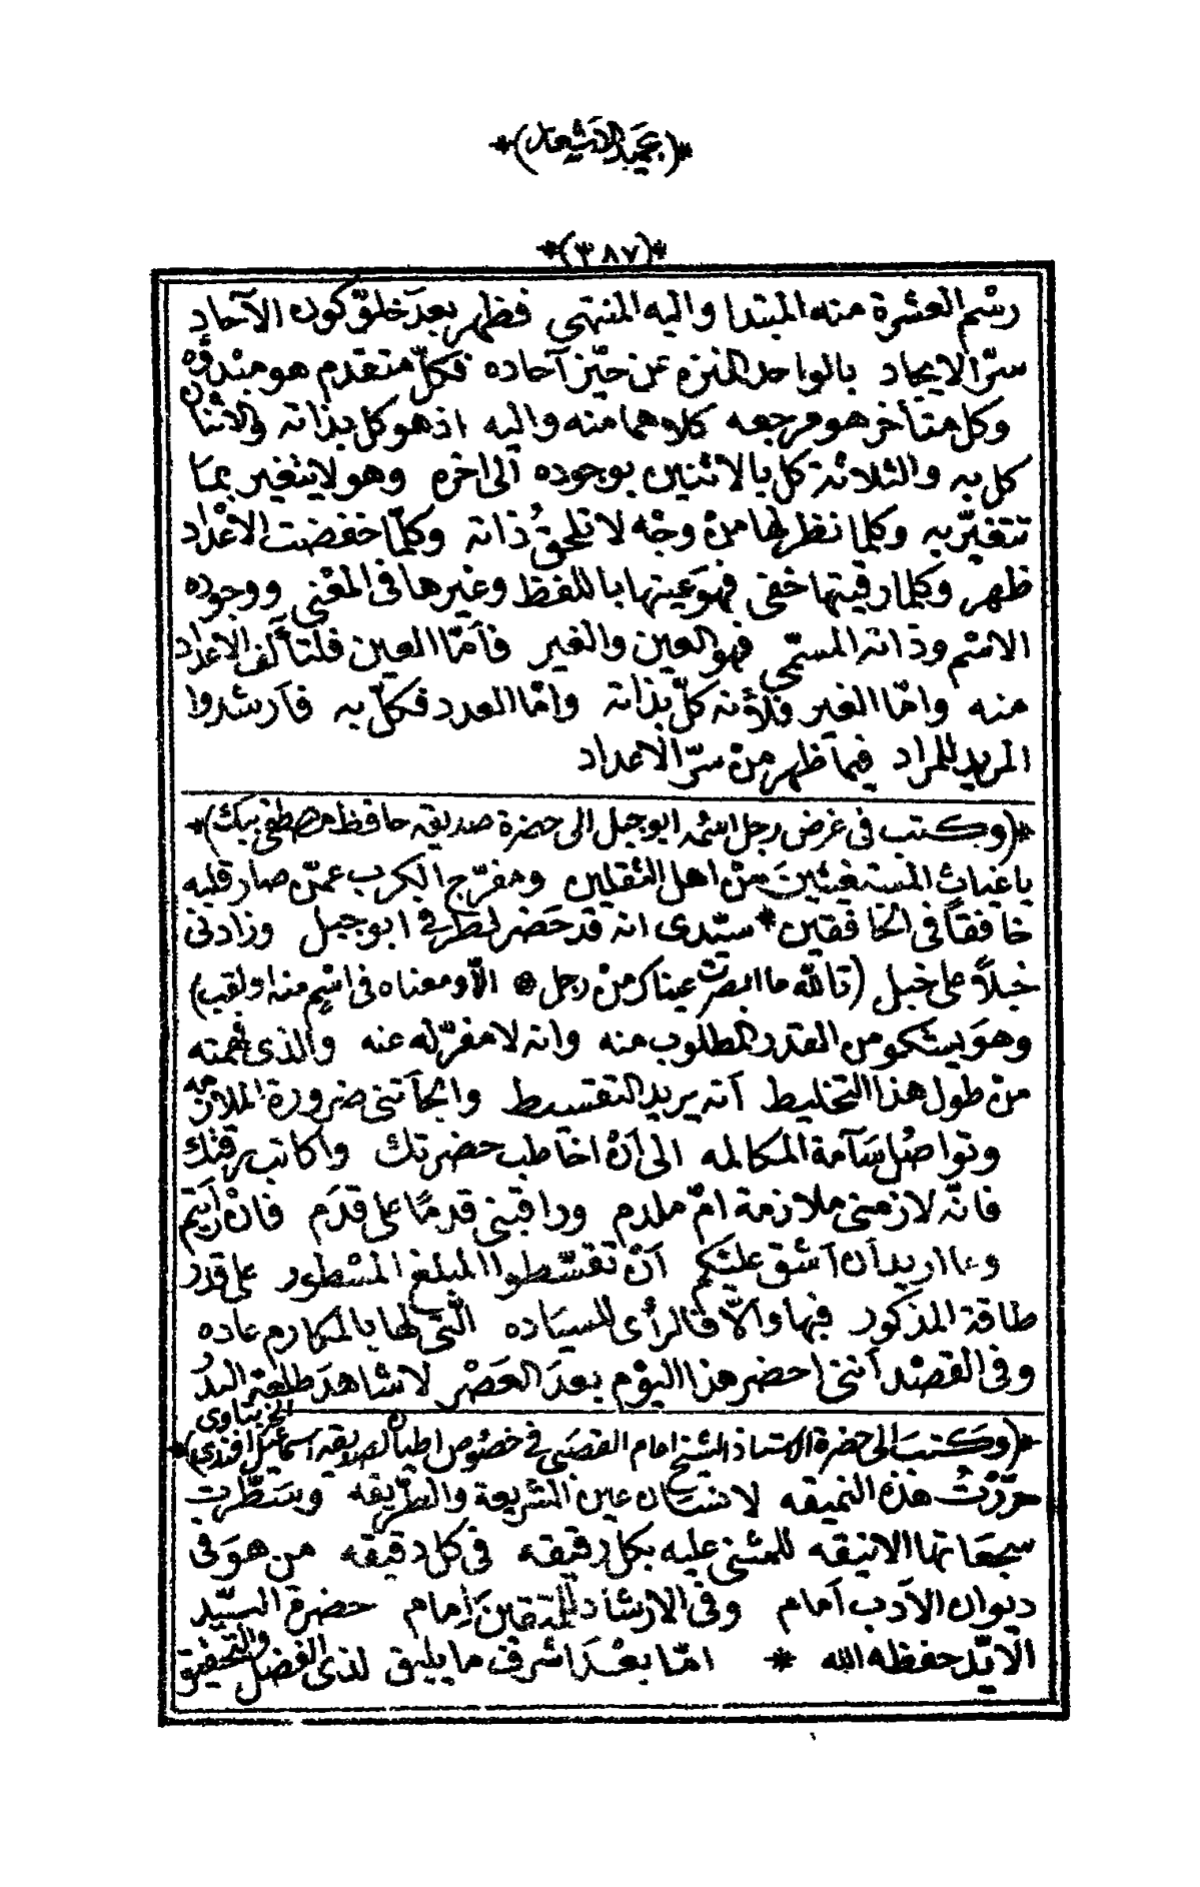 *(٣٨٧)*
رسْم العشرة منه المبتدا واليه المنتهى فظهر بعدَ خلق كون الآحاد
سرّ الايجاد بالواحد المنزه عن حيّز آحاده فكلّ متقدم هو مبدؤه
وكل متأخر هو مرجعه كلاهما منه واليه اذ هو كل بذاته والاثنان
كل به والثلاثة كل بالاثنين بوجوده الى اخره وهو لا يتغير بما
تتغيّر به وكلما نظر لها منْ وجْه لا تلحق ذاته وكلّما خفضت الاعْداد
ظهر وكلما رقيتها خفى فهوَ عينها باللفظ وغيرها فى المعْنى ووجوده
الاسْم وذاته المسمّى فهو العين والغير فأمّا العين فلتألف الاعداد
منه وامّا الغير فلأنه كلّ بذاته وامّا العدد فكلّ به فأرشدوا
المريد للمراد فيما ظهر منْ سرّ الاعداد
*(وكتب فى غرض رجل اسْمه ابو جبل الى حضرة صديقه حافظ مصطفى بيك)*
يا غياث المستغيثينَ منْ اهل الثقلين ومفرّج الكرب عمّن صار قلبه
خافقاً فى الخافقين * سيّدى انه قد حَضر لطرفى ابو جبل وزادنى
خبلاً على خبل (تالله ما ابصرت عيناك منْ رجل * الّا ومعناه فى اسْمٍ منه او لقب)
وهوَ يشكو من القدر المطلوب منه وانه لا مفرّ له عنه والذى فهمته
منْ طول هذا التخليط أنه يريد التقسيط والجأتنى ضرورة الملازمه
وتواصُل سَآمة المكالمه الى أنْ اخاطب حضرتك واكاتب رقتك
فانّه لازمنى ملازمة امّ ملدم وراقبنى قدمًا على قدَم فانْ رأيتم
وما اريد أن أشق عليْكم أنْ تقسّطوا المبلغ المسْطور على قدر
طاقة المذكور فبها والّا فالرأى للسيَاده الّتى لها بالمكارم عاده
وفى القصْد أننى احضر هذا اليوْم بعدَ العَصْر لاشاهدَ طلعة البدْر
*(وكتبَ الى حضرة الاستاذ الشيخ امام القصَبى فى خصُوص اطيان لصديقه اسماعيل افندى الخربتاوى)*
حرّرْتُ هذه النميقه لانسَان عين الشريعة والطّريقه وسَطّرت
سجعَاتها الانيقه للمثنى عليه بكل رقيقه فى كل دقيقه من هوَ فى
ديوان الأدب أمام وفى الارشاد للمتقينَ إمام حضرة السيّد
الايّد حفظه الله * امّا بعْدَ اشرف ما يليق لذى الفضل والتحقيق